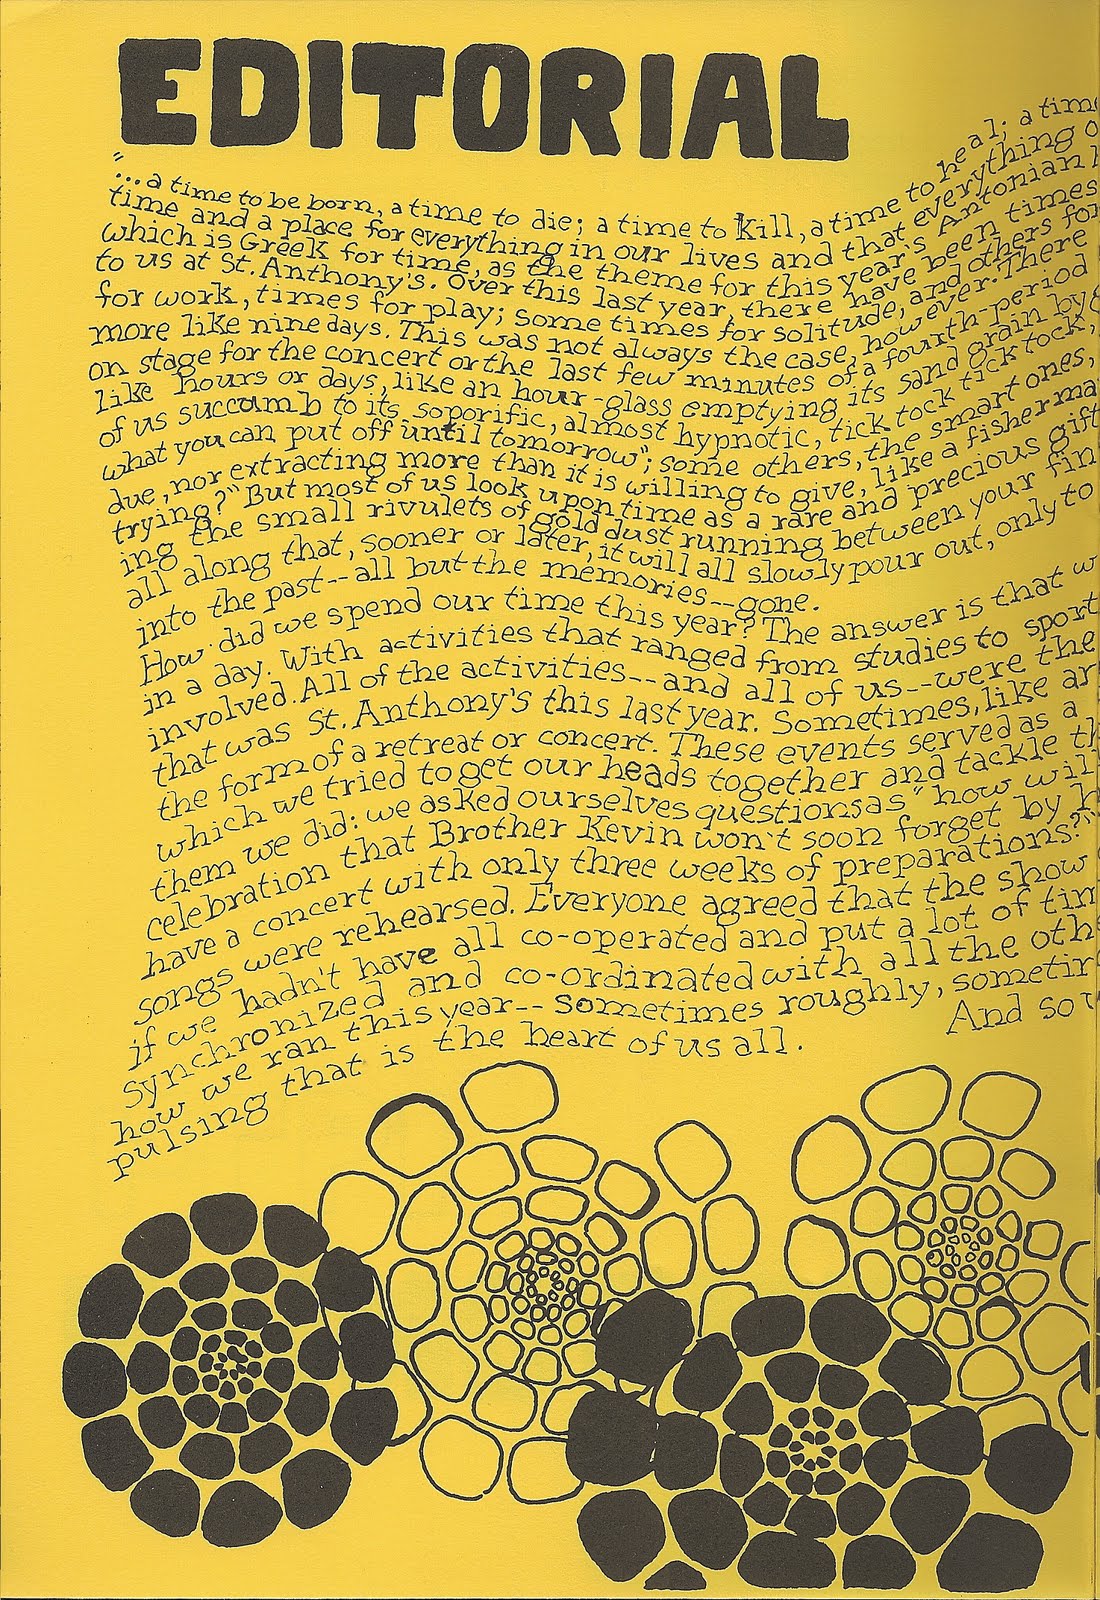 EDITORIAL
"...a time to be born, a time to die; a time to kill, a time to heal; a time
time and a place for everything in our lives and that everything
which is Greek for time, as the theme for this year's Antonian
to us at St. Anthony's. Over this last year, there have been times
for work, times for play; some times for solitude, and others for
more like nine days. This was not always the case, however. There
on stage for the concert or the last few minutes of a fourth-period
like hours or days, like an hour-glass emptying its sand grain by
of us succumb to its soporific, almost hypnotic, tick tock tick tock,
what you can put off until tomorrow"; some others, the smart ones,
due, nor extracting more than it is willing to give, like a fisherma
trying?" But most of us look upon time as a rare and precious gift
ing the small rivulets of gold dust running between your fin
all along that, sooner or later, it will all slowly pour out, only to
into the past--all but the memories--gone.
How did we spend our time this year? The answer is that w
in a day. With activities that ranged from studies to sport
involved. All of the activities--and all of us--were the
that was St. Anthony's this last year. Sometimes, like ar
the form of a retreat or concert. These events served as a
which we tried to get our heads together and tackle th
them we did: we asked ourselves questions as "how wil
celebration that Brother Kevin won't soon forget by h
have a concert with only three weeks of preparations?"
songs were rehearsed. Everyone agreed that the show
if we hadn't have all co-operated and put a lot of tim
synchronized and co-ordinated with all the oth
how we ran this year-- sometimes roughly, sometim
And so
pulsing that is the heart of us all.